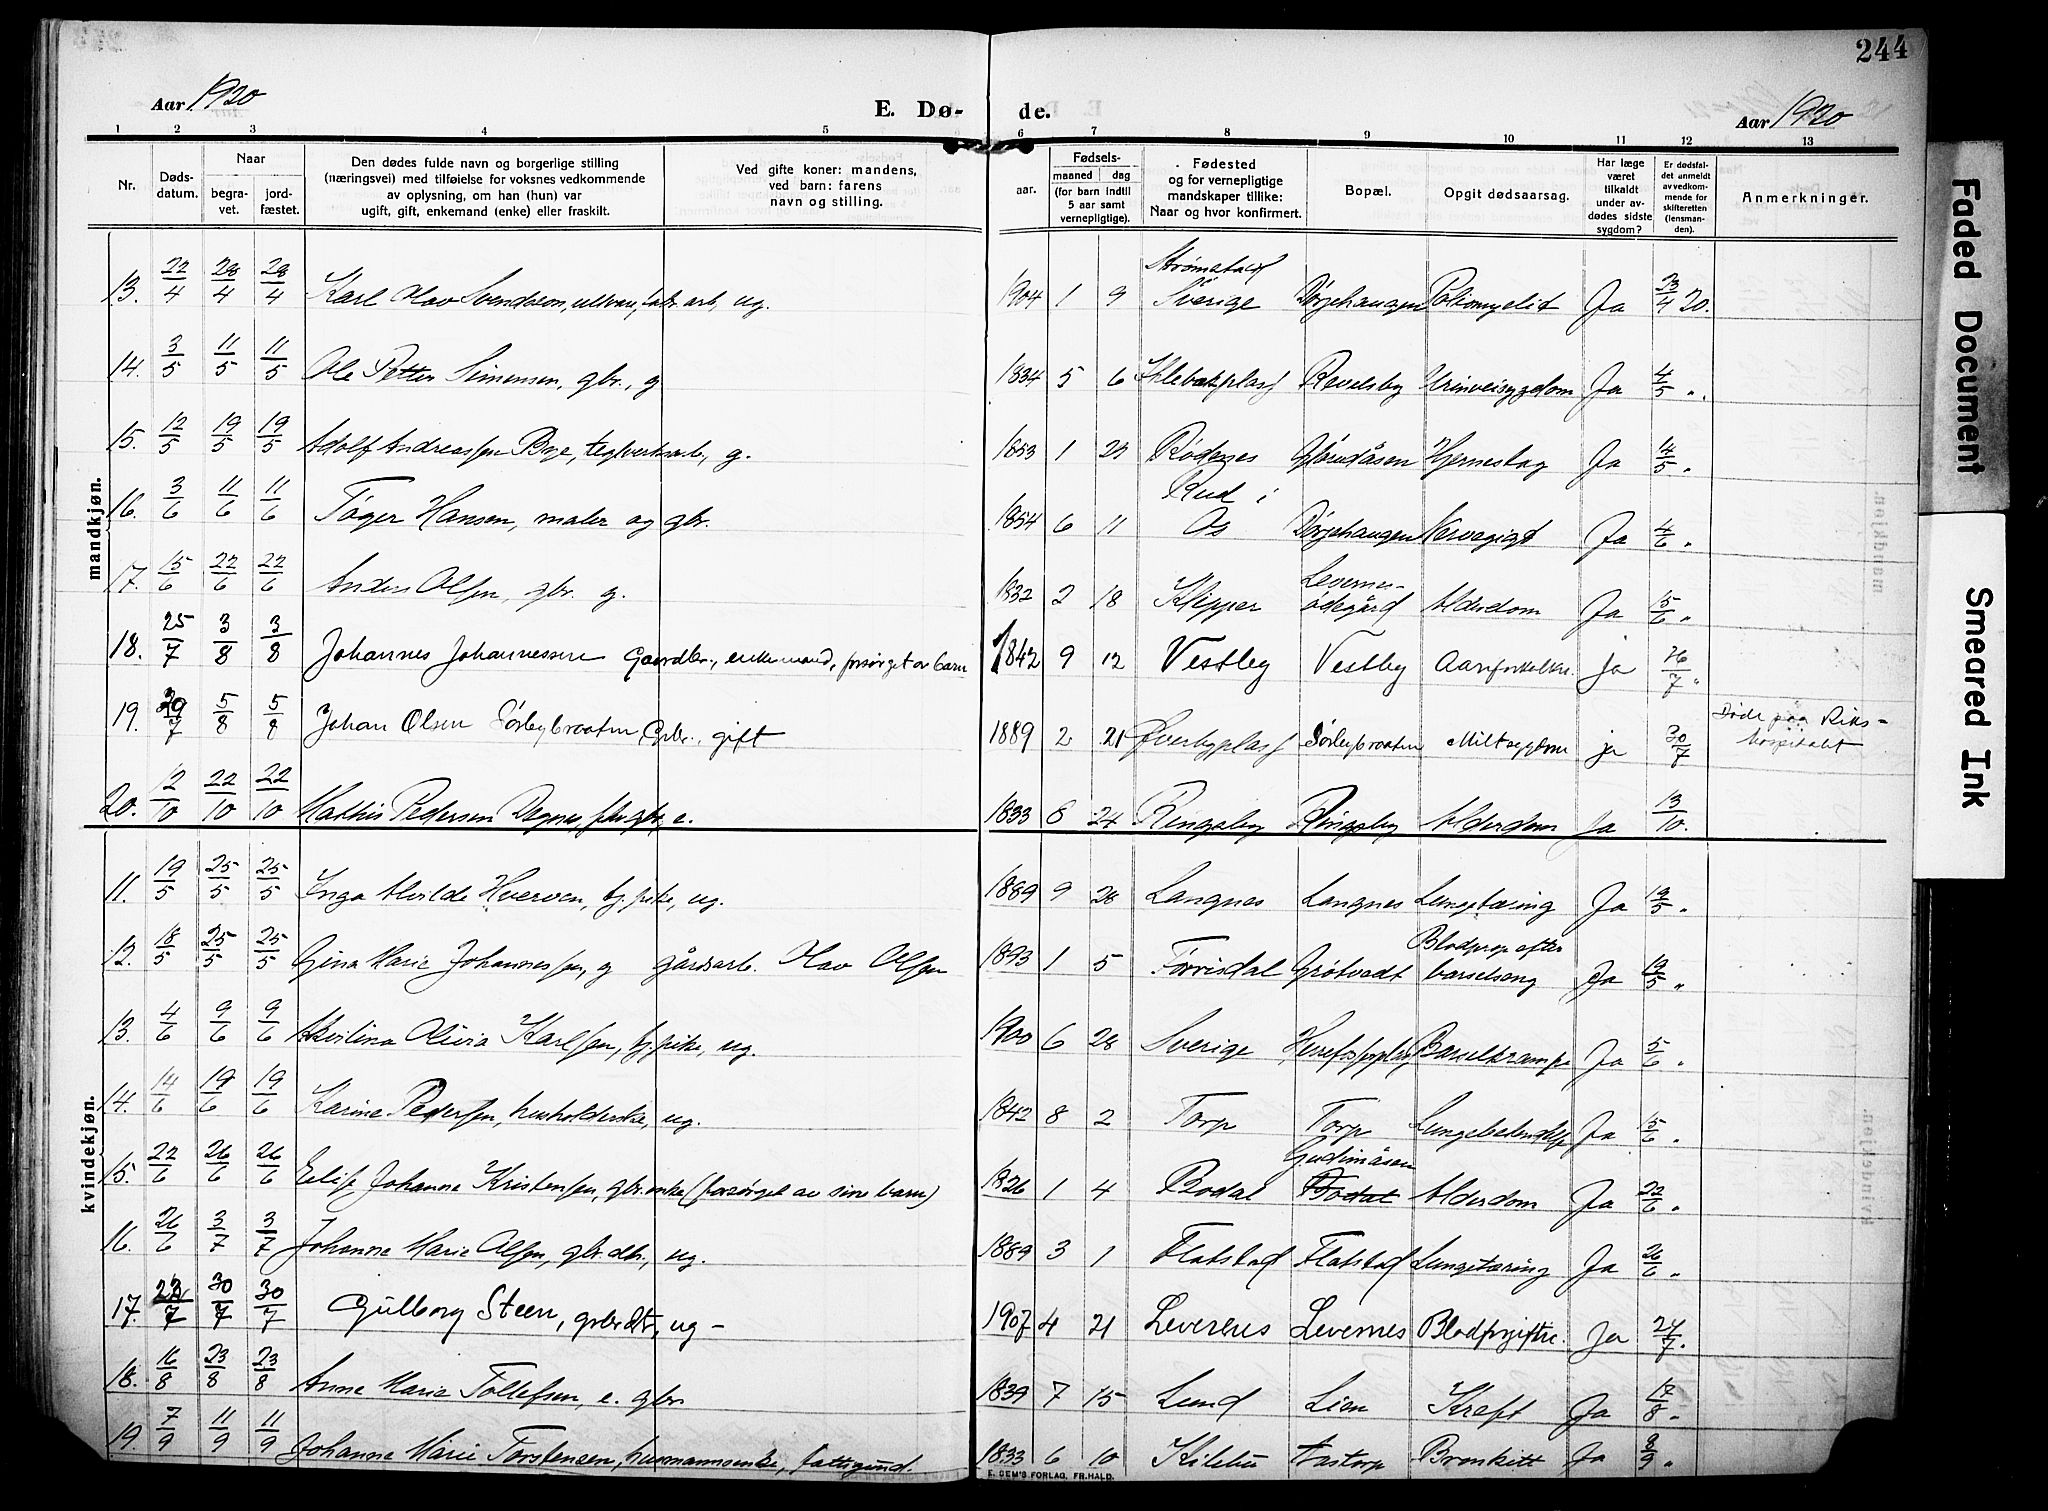 244
Aar 1920
E. Dø-
de.
Aar 1920
1 2 3 4 5 6 7 8 9 10 11 12 13
Nr.
Døds-
datum.
Naar
begra-
vet.
jord-
fæstet.
Den dødes fulde navn og borgerlige stilling
(næringsvei) med tilføielse for voksnes vedkommende
av oplysning, om han (hun) var
ugift, gift, enkemand (enke) eller fraskilt.
Ved gifte koner: mandens,
ved barn: farens
navn og stilling.
Fødsels-
aar. maaned dag
(for barn indtil
5 aar samt
vernepligtige).
Fødested
og for vernepligtige
mandskaper tillike:
Naar og hvor konfirmert.
Bopæl.
Opgit dødsaarsag.
Har læge
været
tilkaldt
under av-
dødes sidste
sygdom?
Er dødsfal-
det anmeldt
av vedkom-
mende for
skifteretten
(lensman-
den).
Anmerkninger.
mandkjøn.
13. 22/4 28/4 28/4 Karl Olav Svendsen, ug. 1904 1 9 Strømstad Sverige Dørjehaugen Poliomyelit Ja 23/4 20.
14. 3/5 11/5 11/5 Ole Petter Simensen, gbr., g 1834 5 6 Revelsby Urinveisygdom Ja 4/5 "
15. 12/5 19/5 19/5 Adolf Andreassen Bye, teglverksarb., g. 1853 1 Rødenes Hjerneslag Ja 14/5 "
16. 3/6 11/6 11/6 Tøger Hansen, maler og gbr. 1854 6 11 Rud i Os Dørjehaugen Nervegigt Ja 4/6 "
17. 15/6 22/6 22/6 Anders Olsen, gbr. g. 1832 2 18 Klipper Levernes-
ødegård Alderdom Ja 15/6 "
18. 25/7 3/8 3/8 Johannes Johannessen Gaardbr., enkemand, forsørget av barn 1842 9 12 Vestby Vestby Ja 26/7 "
19. 29/7 5/8 5/8 Johan Olsen Sørbybraaten Gbr., gift 1889 2 21 Øverbyplass Sørbybraaten Miltsygdom ja 30/7 Døde paa Riks-
hospitalet
20. 12/10 22/10 22/10 Mathis Pedersen e. 1833 8 24 Ringsby Ringsby Alderdom Ja 13/10.
kvindekjøn.
11. 19/5 25/5 25/5 Inga Alvilde Hverven, tj.pike, ug. 1889 9 28 Langnes Langnes Lungetæring Ja 19/5 "
12. 18/5 25/5 25/5 Gina Marie Johannessen, g gårdsarb. Olav Olsen 1893 1 5 Tørrisdal Grøtvedt Blodprop efter
barselseng Ja 19/5 "
13. 4/6 9/6 9/6 Akvilina Olivia Karlsen, tj.pike, ug. 1900 6 28 Sverige Barselkrampe Ja 5/6 "
14. 14/6 19/6 19/6 Karina Pedersen, husholderske, ug. 1842 8 2 Torp Torp Ja 15/6 "
15. 22/6 26/6 26/6 Johanne Kristensen, gbr.enke (forsørget av sine barn) 1826 1 4 Bodal Gudimåsen
Bodal Alderdom Ja 22/6 "
16. 26/6 3/7 3/7 Johanne Marie Olsen, gbr.dtr., ug. 1889 3 1 Flatstad Flatstad Lungetæring Ja 26/6 "
17. 30/7 30/7 Gulborg Steen, gbrdtr, ug - 1907 4 21 Levernes Levernes Blodforgiftn. Ja 24/7.
18. 16/8 23/8 23/8 Anne Marie Tollefsen, e. gbr. 1839 7 15 Lund Lien Kreft Ja 17/8 "
19. 7/9 11/9 11/9 Johanne Marie Torstensen, husmannsenke, fattigund. 1833 6 10 Kilebu Aastorp Bronkitt Ja 8/9 "
E. SEM'S FORLAG, FR.HALD.
Faded Document
Smeared Ink